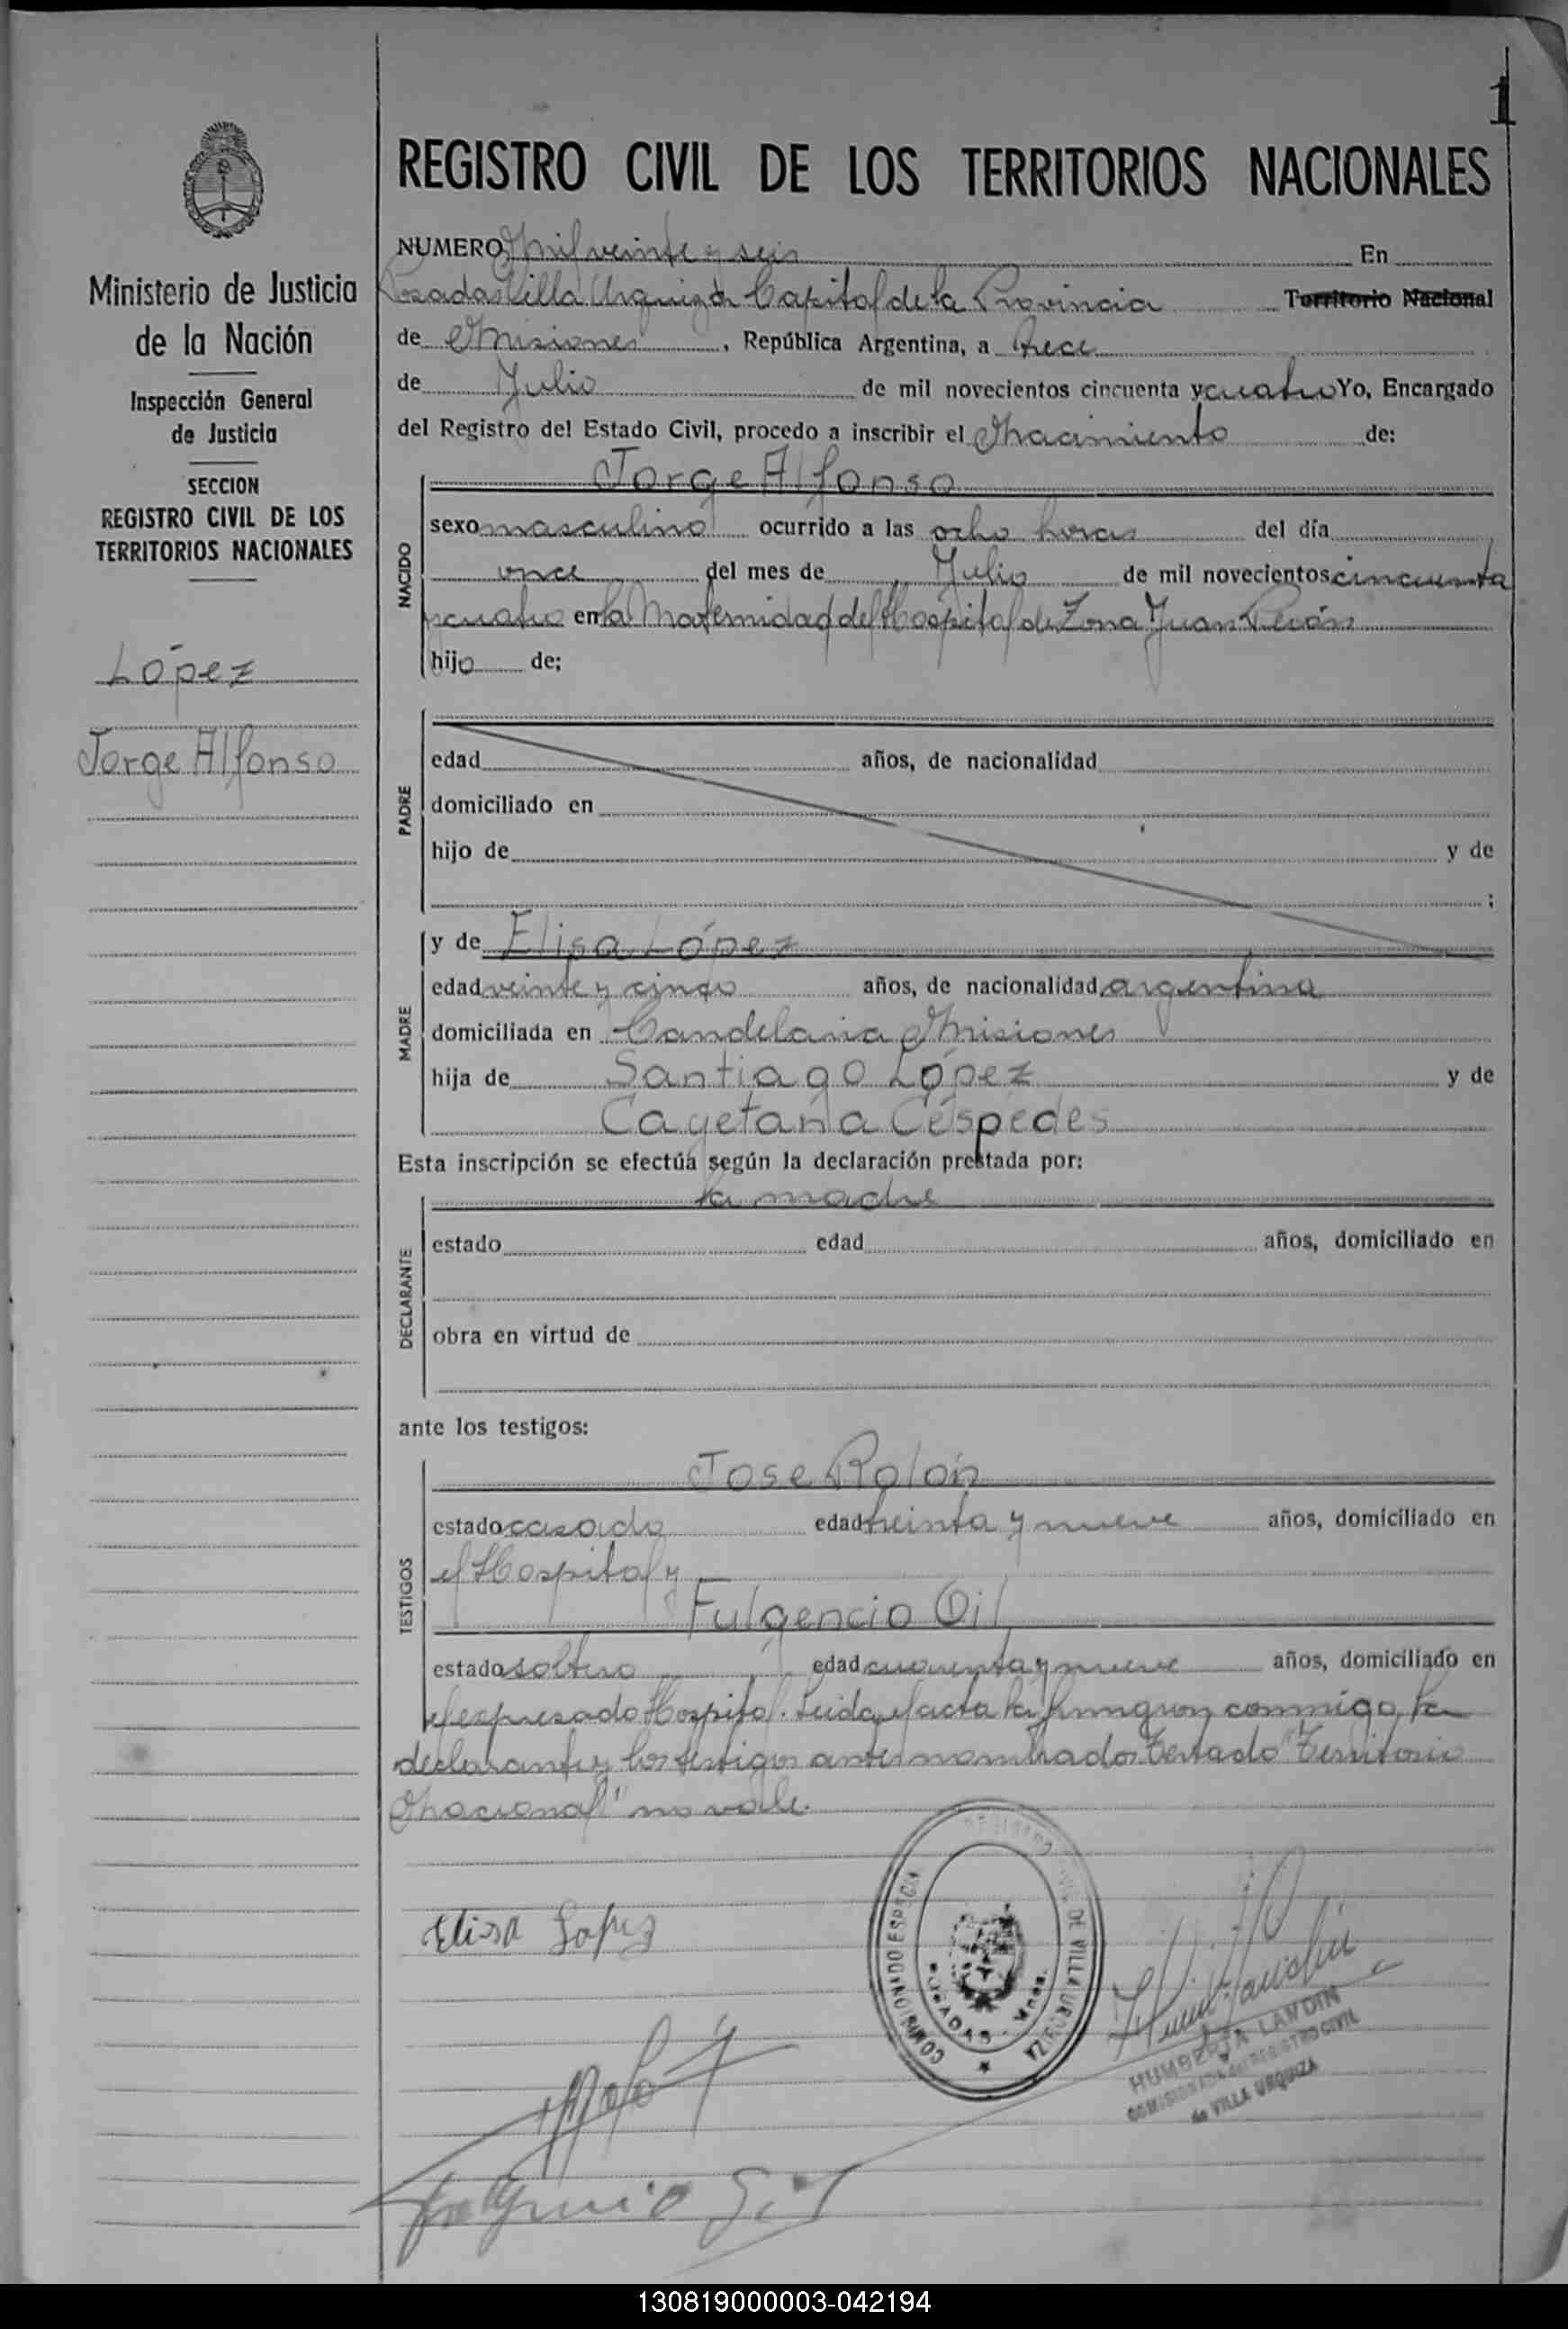 1
REGISTRO CIVIL DE LOS TERRITORIOS NACIONALES
Ministerio de Justicia
de la Nación
Inspección General
de Justicia
SECCION
REGISTRO CIVIL DE LOS
TERRITORIOS NACIONALES
López
Jorge Alfonso
NUMERO Mil veinte y seis En
Posadas Villa Urquiza Capital de la Provincia Territorio Nacional
de Misiones, República Argentina, a trece
de Julio de mil novecientos cincuenta y cuatro Yo, Encargado
del Registro del Estado Civil, procedo a inscribir el Nacimiento de:
Jorge Alfonso
NACIDO
sexo masculino ocurrido a las ocho horas del día
once del mes de Julio de mil novecientos cincuenta
y cuatro en la Maternidad del Hospital de Zona Juan Perón
hijo de;
PADRE
edad años, de nacionalidad
domiciliado en
hijo de y de
;
MADRE
y de Elisa López
edad veinte y cinco años, de nacionalidad argentina
domiciliada en Candelaria Misiones
hija de Santiago López y de
Cayetana Céspedes
Esta inscripción se efectúa según la declaración prestada por:
la madre
DECLARANTE
estado edad años, domiciliado en
obra en virtud de
ante los testigos:
TESTIGOS
Jose Rolón
estado casado edad treinta y nueve años, domiciliado en
el Hospital y
Fulgencio Gil
estado soltero edad cuarenta y nueve años, domiciliado en
el expresado Hospital. Leida el acta la firmaron conmigo, la
declarante y los testigos antes nombrados. Testado "Territorio
Nacional" no vale.
Elisa Lopez
COMISIONADO ESPECIAL DE VILLA URQUIZA
POSADAS - Mnes.
HUMBERTA LANDIN
COMISIONADA del REGISTRO CIVIL
de VILLA URQUIZA
Fulgencio Gil
130819000003-042194